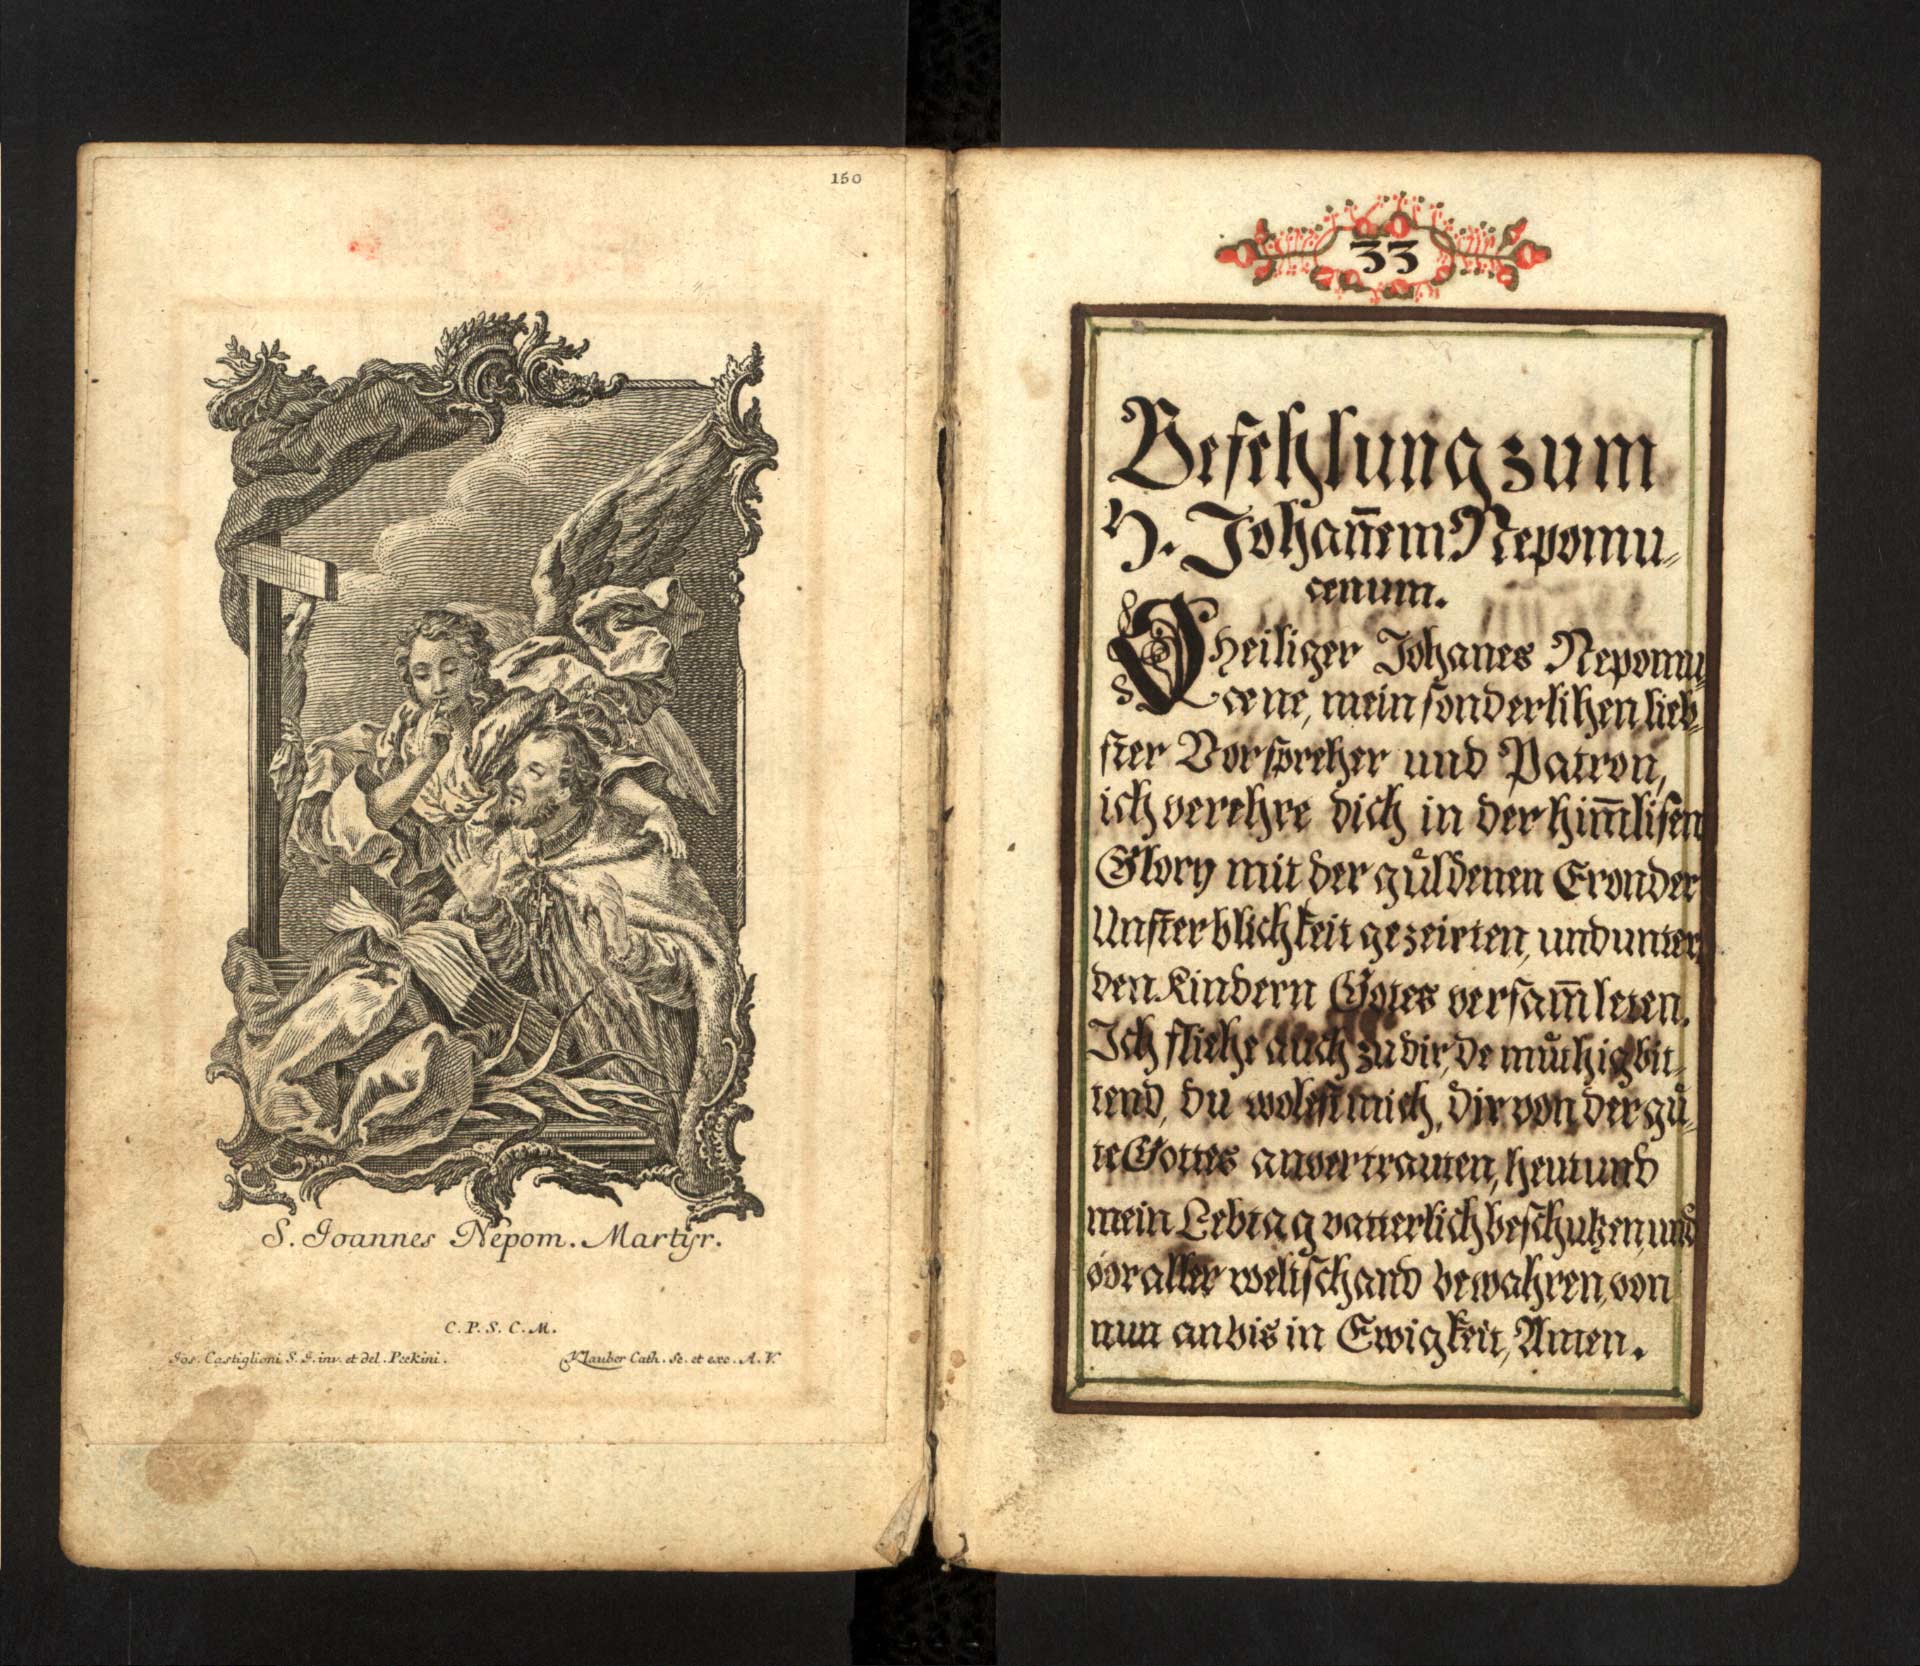 150
S. Joannes Nepom. Martyr.
C. P. S. C. M.
Jos. Castiglioni S. J. inv. et del. Pekini.
Klauber Cath. Sc. et exc. A. V.
33
Befehlung zum
H. Johan̅em Nepomu-
cenum.
O heiliger Johanes Nepomu-
cene, mein sonderlihen lieb-
ster Vorspreher und Patron,
ich verehre dich in der him̅lisen
Glory mit der gůldenen Cron der
Unsterblichkeit gezeirten, und unter
den Kindern Gotes versam̅leten.
Ich fliehe auch zu dir, demůthig bit-
tend, du wolest mich, dir von der gů-
te Gottes anvertrauten, heut und
mein Lebtag vatterlich beschutzen, und
vor aller weltschand bewahren, von
nun an bis in Ewigkeit, Amen.